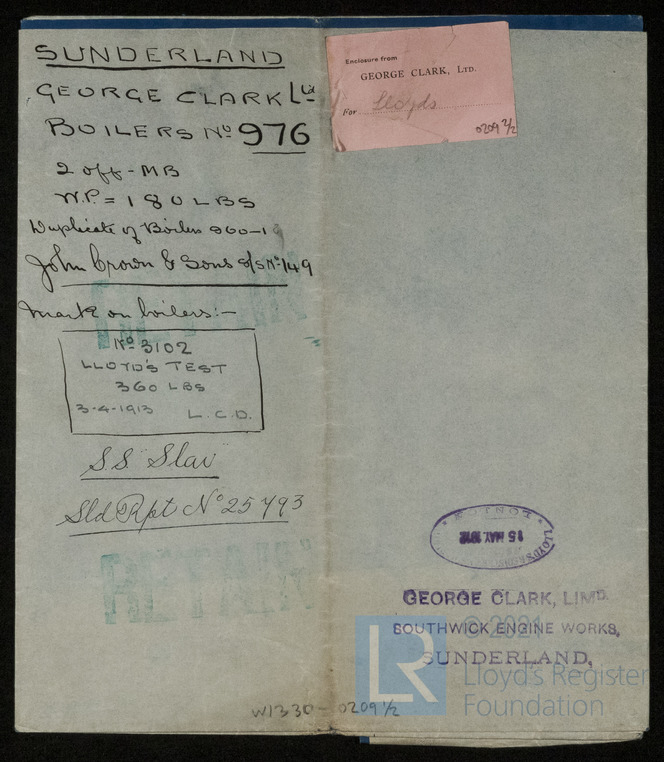 SUNDERLAND
GEORGE CLARK Ltd
BOILERS No 976
2 off - MB
W.P. = 180 LBS
Duplicate of Boilers 960-1
John Crown & Sons S/S No 149
Mark on boilers:-
No 3102
LLOYD'S TEST
360 LBS
3-4-1913 L.C.D.
S.S. "Slav"
Sld Rpt No 25793
Enclosure from
GEORGE CLARK, LTD.
For Lloyds
0209 2/2
LLOYD'S
15 MAY 1912
GEORGE CLARK, LIMD.
SOUTHWICK ENGINE WORKS,
SUNDERLAND,
W1330-0209 1/2
LR
© 2021
Lloyd's Register
Foundation